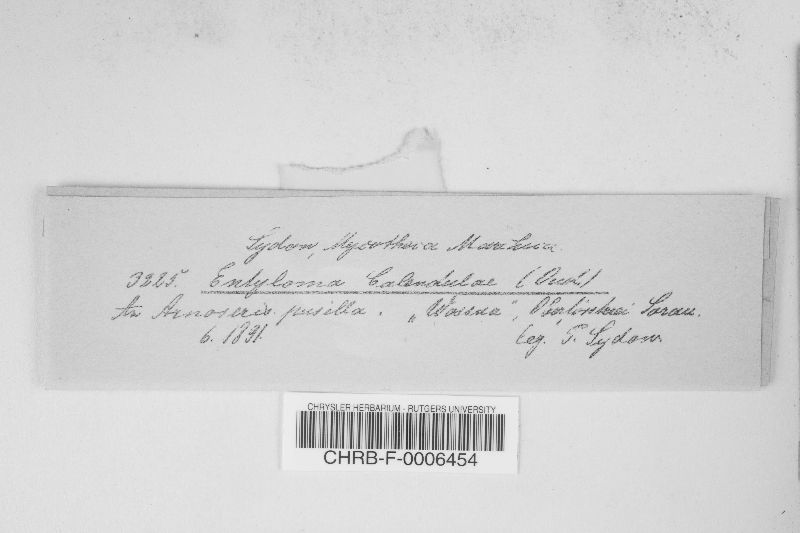 Sydow, Mycotheca Marchica
3225. Entyloma Calendulae (Oud.)
An Arnoseris pusilla. „Waeena“, bei Sorau.
6. 1891. leg. P. Sydow.
CHRYSLER HERBARIUM - RUTGERS UNIVERSITY
CHRB-F-0006454